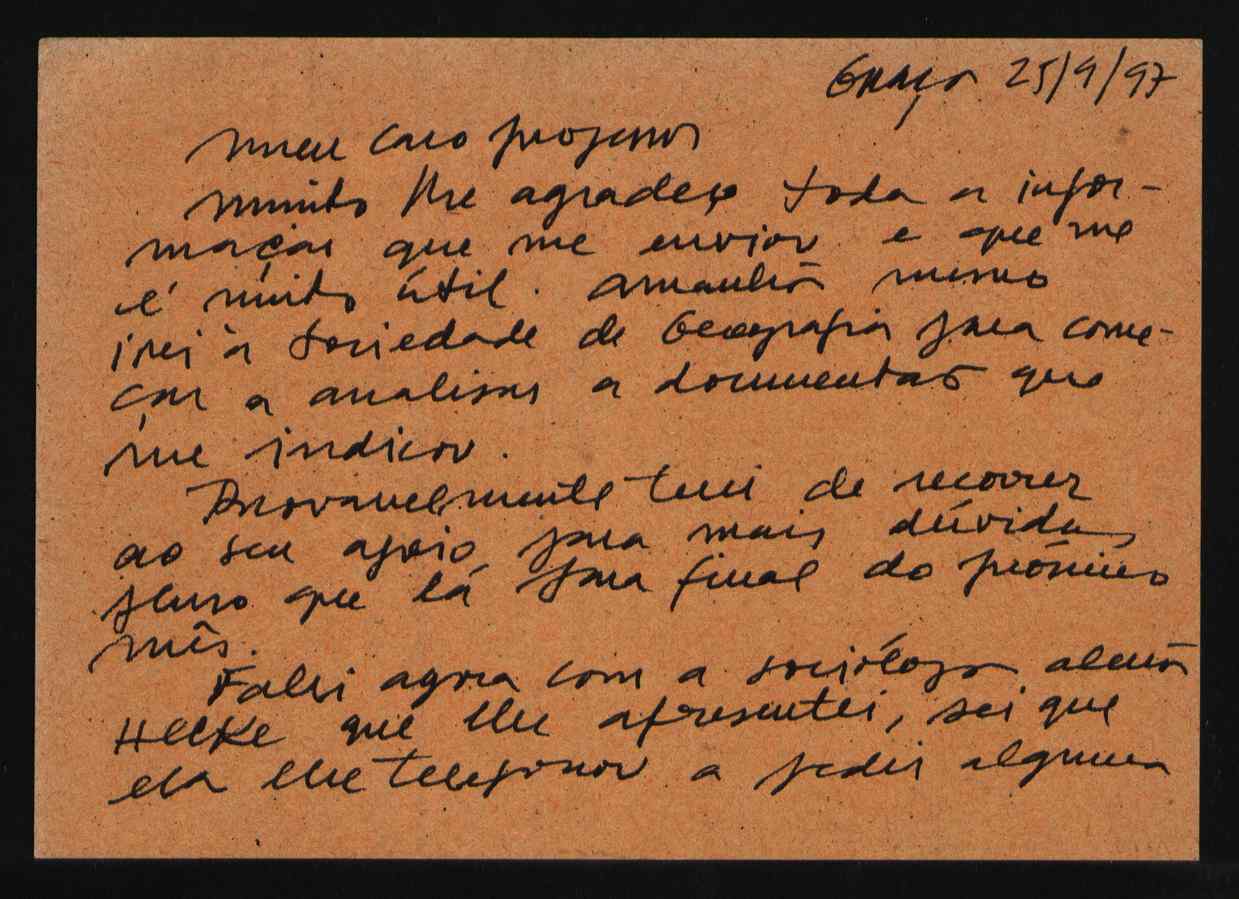 Graça 25/9/97
Meu caro professor
Muito lhe agradeço toda a infor-
mação que me enviou e que me
é muito útil. Amanhã mesmo
irei à Sociedade de Geografia para come-
çar a analisar a documentação que
me indicou.
Provavelmente terei de recorrer
ao seu apoio para mais dúvidas
penso que lá para final do próximo
mês.
Falei agora com a socióloga alemã
Heelke que lhe apresentei, sei que
ela lhe telefonou a pedir alguma